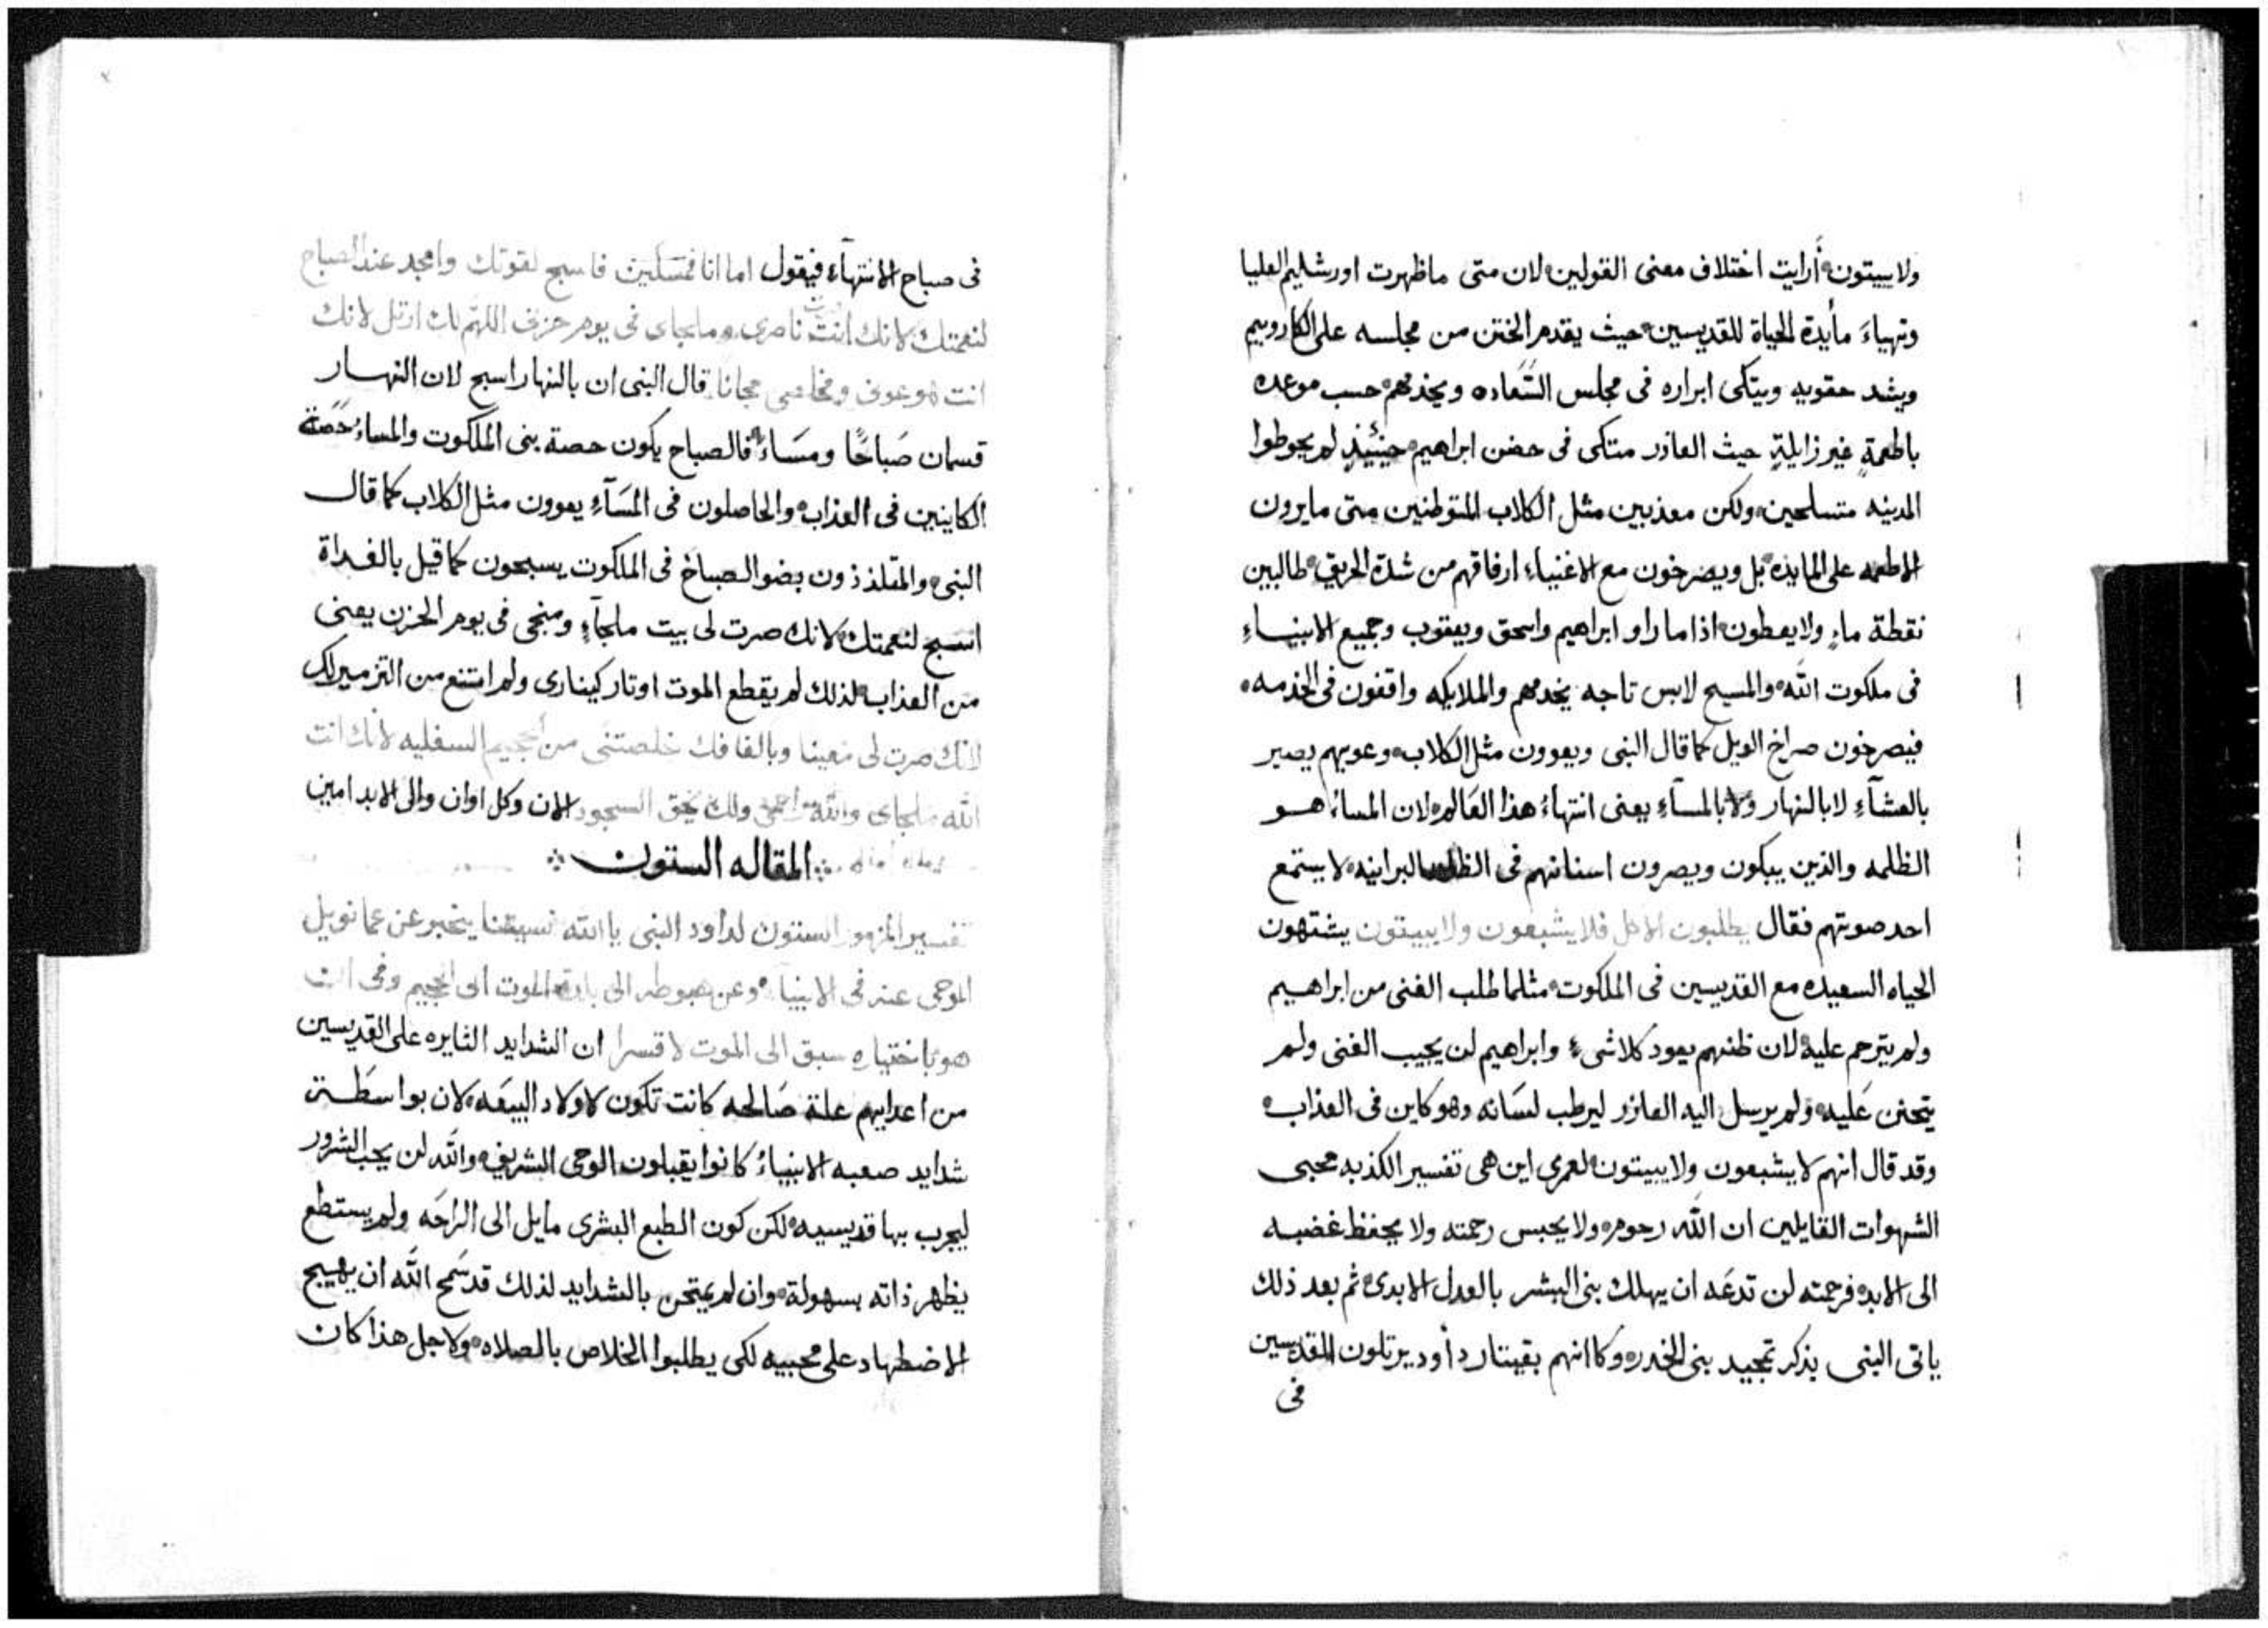 ولا يبيتون أرايت اختلاف معنى القولين لان متى ماظهرت اورشليم العليا
وتهياءَ مأيدة الحياة للقديسين حيث يقدم الختن من مجلسه على الكاروبيم
ويشد حقويه ويتكى ابراره فى مجلس السَّعاده ويخدمهم حسب موعده
باطعمةٍ غير زايلةٍ حيث العازر متتكى فى حضن ابراهيم حينَئيذٍ لم يحوطوا
المدينه متسلحين ولكن معذبين مثل الكلاب المتوطنين متى مايرون
الاطعمه على المايده بل ويصرخون مع الاغنياء ارفاقهم من شدة الحريق طالبين
نقطة ماءٍ ولا يعطون اذا ما راو ابراهيم واسحق ويعقوب وجميع الانبياءِ
فى ملكوت الله والمسيح لابس تاجه يخدمهم والملايكه واقفون فى الخدمه
فيصرخون صراخ الويل كما قال النبى ويعوون مثل الكلاب وعويهم يصير
بالعشآءِ لا بالنهار ولا بالمسآءِ يعنى انتهاءُ هذا العَالم لان المساءُ هو
الظلمه والذين يبكون ويصرون اسنانهم فى البرانيه لا يستمع
احد صوتهم فقال يطلبون الاكل فلا يشبعون ولا يبيتون يشتهون
الحياه السعيده مع القديسين فى الملكوت مثلما طلب الغنى من ابراهيم
ولم يترحم عليه لان ظنهم يعود كلا شىء وابراهيم لن يجيب الغنى ولم
يتحنن عَليه ولم يرسل اليه العازر ليرطب لسَانه وهو كاين فى العذاب
وقد قال انهم لا يشبعون ولا يبيتون لعمرى اين هى تفسير الكذبه محبى
الشهوات القايلين ان الله رحوم ولا يحبس رحمته ولا يحفظ غضبه
الى الابد فرحمته لن تدعَه ان يهلك بنى البشر بالعدل الابدى ثم بعد ذلك
ياتى النبى بذكر تمجيد بنى الخدر وكاانهم بقيتار دأود يرتلون القديسين
فى
فى صباح الانتهآء فيقول اما انا فمسكين فاسبح لقوتك وامجد عند الصباح
لنعمتك لانك انت صرت ناصرى وملجاى فى يوم حزنى اللهم لك ارتل لانك
انت هو عونى ومخلصى مجانا قال النبى ان بالنهار اسبح لان النهار
قسمان صَباحًا ومسَاءً فالصباح يكون حصة بنى الملكوت والمساءُ حصَّة
الكاينين فى العذاب والحاصلون فى المسَآءِ يعوون مثل الكلاب كما قال
النبى والمتلذذون بضو الصباح فى الملكوت يسبحون كما قيل بالغداة
اسبح لنعمتك لانك صرت لى بيت ملجآءٍ ومنجى فى يوم الحزن يعنى
من العذاب لذلك لم يقطع الموت اوتار كينارى ولم امتنع من التزمير لك
لانك صرت لى معينا خلصتنى من الجحيم السفليه لانك انت
الله ملجاى والله راحمى ولك يحق السجود الان وكل اوان والى الابد امين
المقاله الستون
تفسير المزمور الستون لداود النبى يا الله نسيتنا يخبر عن عمانويل
الموحى عنه فى الانبياء وعن هبوطه الى بلدة الموت الى الجحيم وفى انه
هو باختياره سبق الى الموت لا قسرا ان الشدايد الثايره على القديسين
من اعدايهم علة صَالحه كانت تكون لاولاد البيعَه لان بواسطة
شدايد صعبه الانبياءُ كانوا يقبلون الوحى الشريف والله لن يحب الشرور
ليجرب بها قديسيه لكن كون الطبع البشرى مايل الى الراحَه ولم يستطع
يظهر ذاته بسهولة وان لم يمتحن بالشدايد لذلك قد سَمح الله ان يهيج
الاضطهاد على محبيه لكى يطلبوا الخلاص بالصلاه ولاجل هذا كان